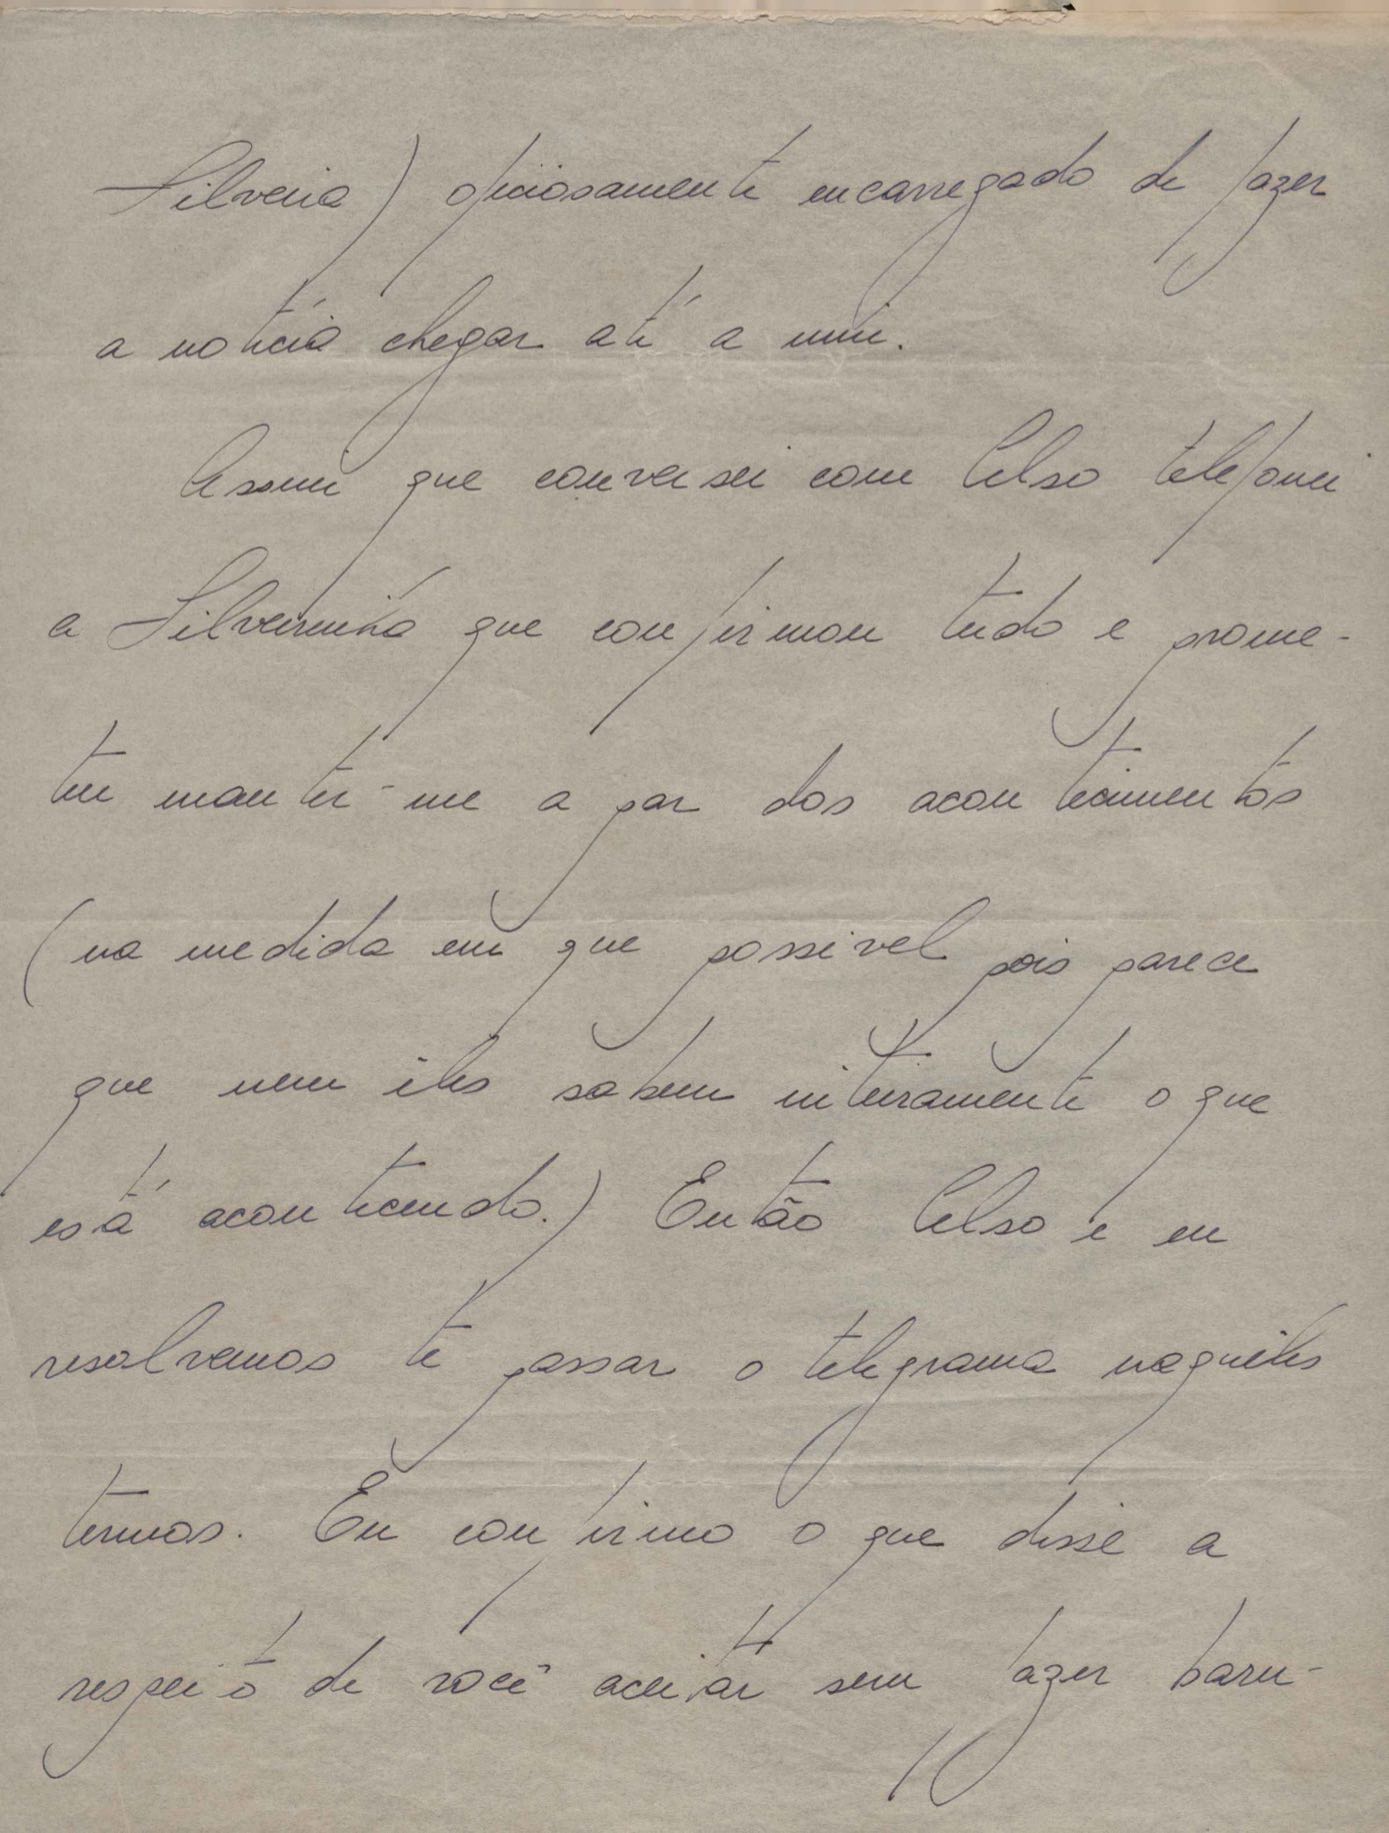 Silveira) oficiosamente encarregado de fazer
a notícia chegar até a mim.
Assim que conversei com Celso telefonei
a Silveirinha que confirmou tudo e prome-
teu manter-me a par dos acontecimentos
(na medida em que possivel pois parece
que nem êles sabem inteiramente o que
está acontecendo.) Então Celso e eu
resolvemos te passar o telegrama naquêles
termos. Eu confirmo o que disse a
respeito de você aceitar sem fazer baru-